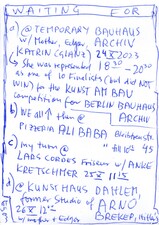 WAITING FOR
a) @ TEMPORARY BAUHAUS
w/ Mother, Edgar, ARCHIV
KATRIN (GLANZ) 24 X 2023
↳ She was represented 18 30 - 20 00
as one of 10 Finalists (but did NOT
WIN) for the KUNST AM BAU
competition for BERLIN BAUHAUS
ARCHIV
b) WE all ↑ then @
PIZZERIA ALI BABA Bleibtreustr.
c) my turn @ " till 16 45
LARS CORDES Friseur w/ ANKE
KRETSCHMER 25 X 11 15
d) @ KUNSTHAUS DAHLEM,
former Studio of ARNO
26 X 12 15 BREKER,
w/ Mother + Edgar